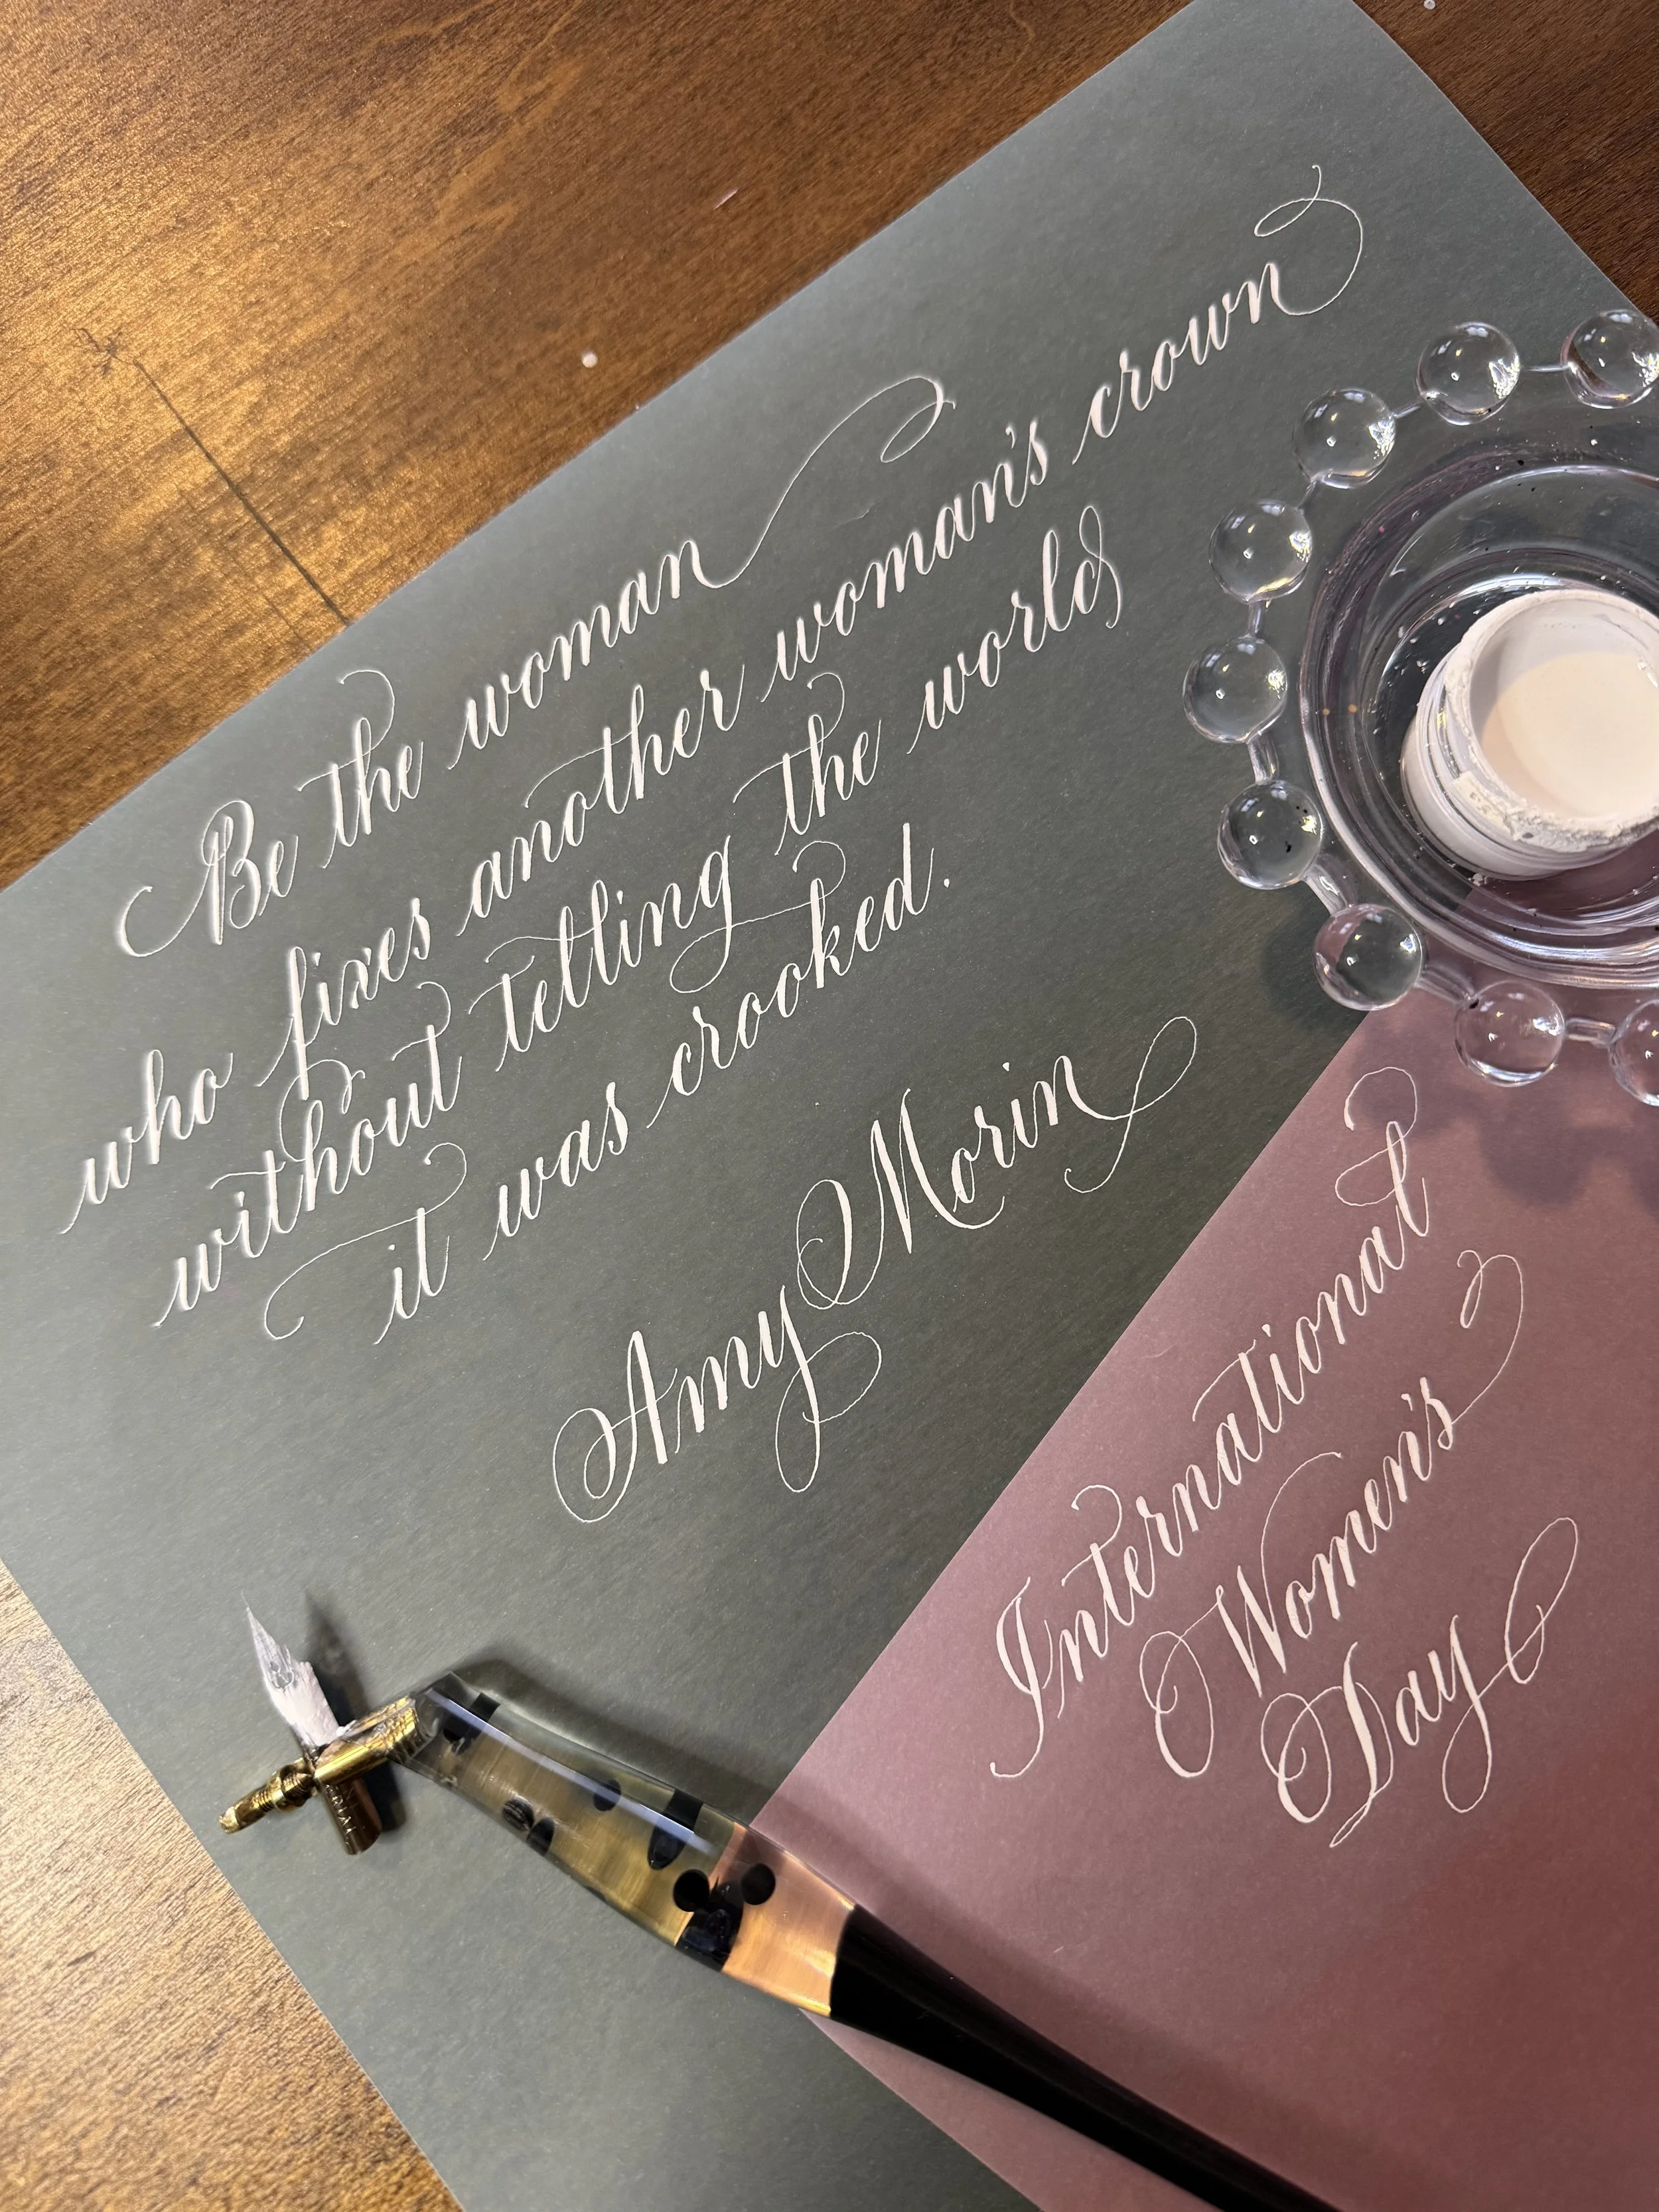 Be the woman
who fixes another woman's crown
without telling the world
it was crooked.
Amy Morin
International
Women's
Day